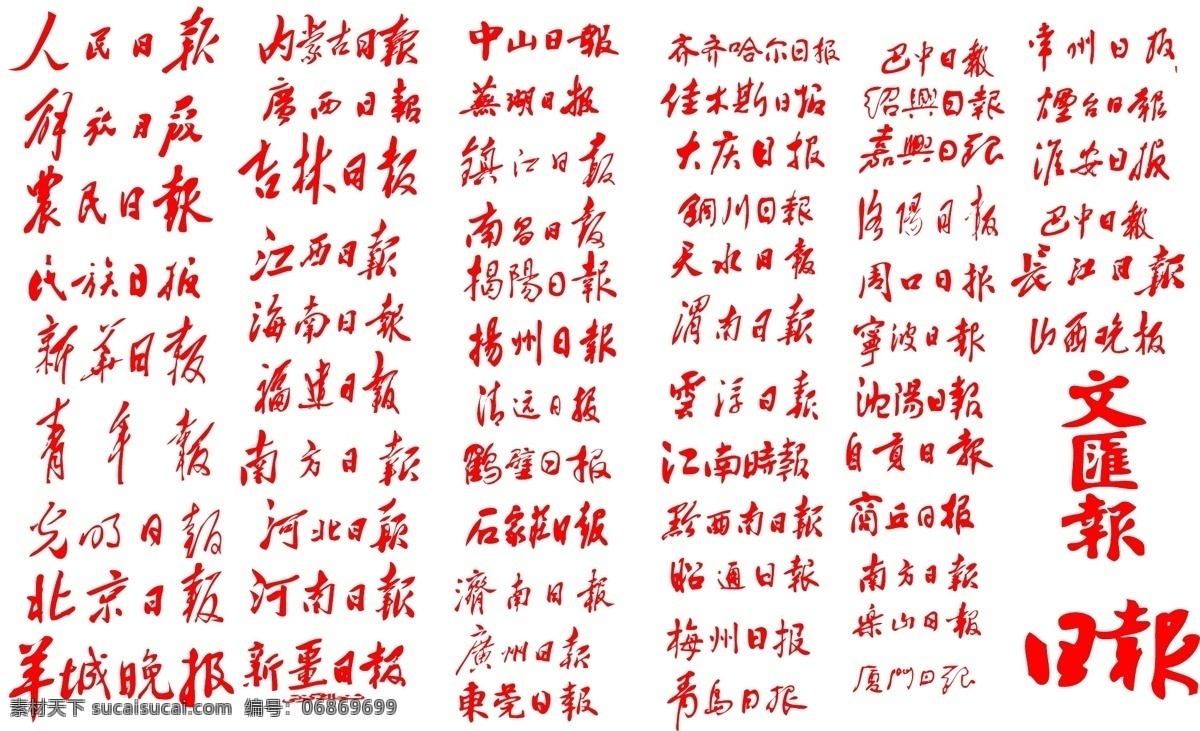 人民日報
解放日报
農民日報
民族日报
新華日报
青年报
光明日報
北京日报
羊城晚报
内蒙古日報
廣西日報
吉林日报
江西日報
海南日報
福建日报
南方日報
河北日報
河南日報
新疆日报
中山日報
蕪湖日报
鎮江日报
南昌日报
揭陽日報
揚州日報
清远日报
鹤壁日报
石家莊日報
濟南日報
廣州日報
東莞日報
齐齐哈尔日报
佳木斯日报
大庆日报
銅川日報
天水日報
渭南日報
雲浮日报
江南時報
黔西南日報
昭通日報
梅州日报
青岛日报
巴中日報
紹興日報
嘉興日报
洛陽日报
周口日报
寧波日報
沈陽日報
自貢日报
商丘日报
南方日報
乐山日報
厦门日报
常州日报
煙台日報
淮安日报
巴中日報
長江日報
山西晚报
文匯報
日報
素材天下 sucaisucai.com 编号：06869699